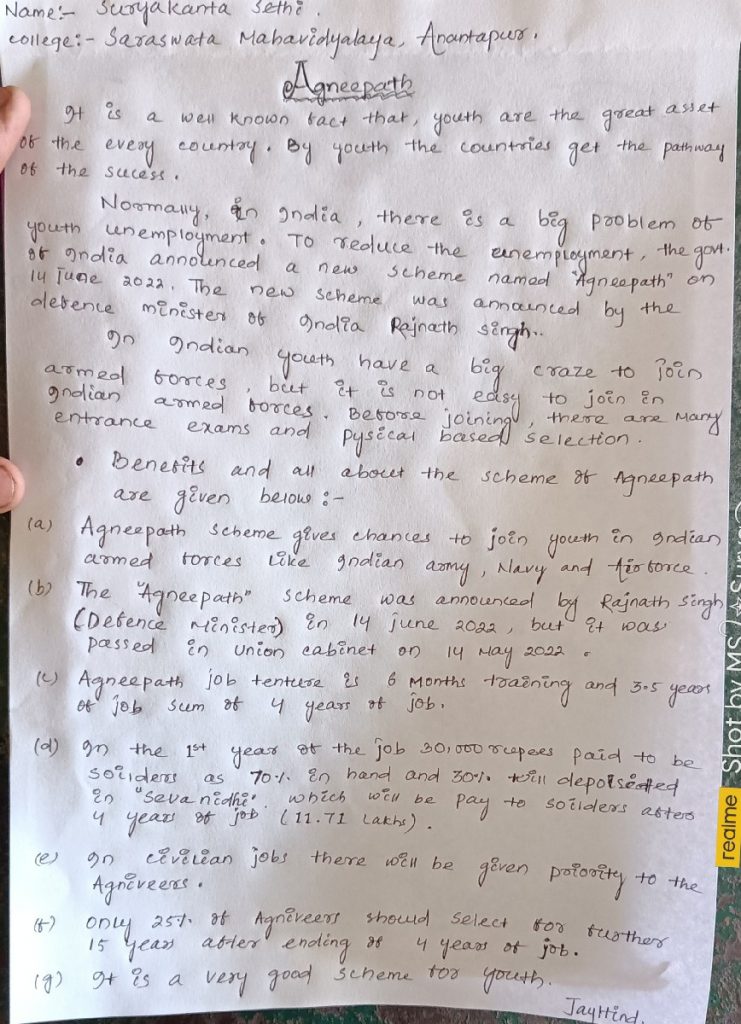 Name:- Suryakanta Sethi.
college:- Saraswata Mahavidyalaya, Anantapur.
Agneepath
It is a well known fact that, youth are the great asset
of the every country. By youth the countries get the pathway
of the sucess.
Normally, in India, there is a big problem of
youth unemployment. To reduce the unemployment, the govt.
of India announced a new scheme named "Agneepath" on
14 June 2022. The new scheme was announced by the
defence minister of India Rajnath Singh..
In Indian youth have a big craze to join
armed forces, but it is not easy to join in
Indian armed forces. Before joining, there are many
entrance exams and pysical based selection.
• Benefits and all about the scheme of Agneepath
are given below :-
(a) Agneepath scheme gives chances to join youth in Indian
armed forces like Indian army, Navy and Airforce.
(b) The "Agneepath" scheme was announced by Rajnath Singh
(Defence Minister) in 14 june 2022, but it was
passed in Union cabinet on 14 May 2022.
(c) Agneepath job tenture is 6 Months training and 3.5 years
of job sum of 4 years of job.
(d) In the 1st year of the job 30,000 rupees paid to be
soliders as 70% in hand and 30% will depoisited
in "Seva nidhi". which will be pay to soilders after
4 years of job (11.71 Lakhs).
(e) In civilian jobs there will be given priority to the
Agniveers.
(f) only 25% of Agniveers should select for further
15 years after ending of 4 years of job.
(g) It is a very good scheme for youth.
JayHind.
realme
Shot by MS